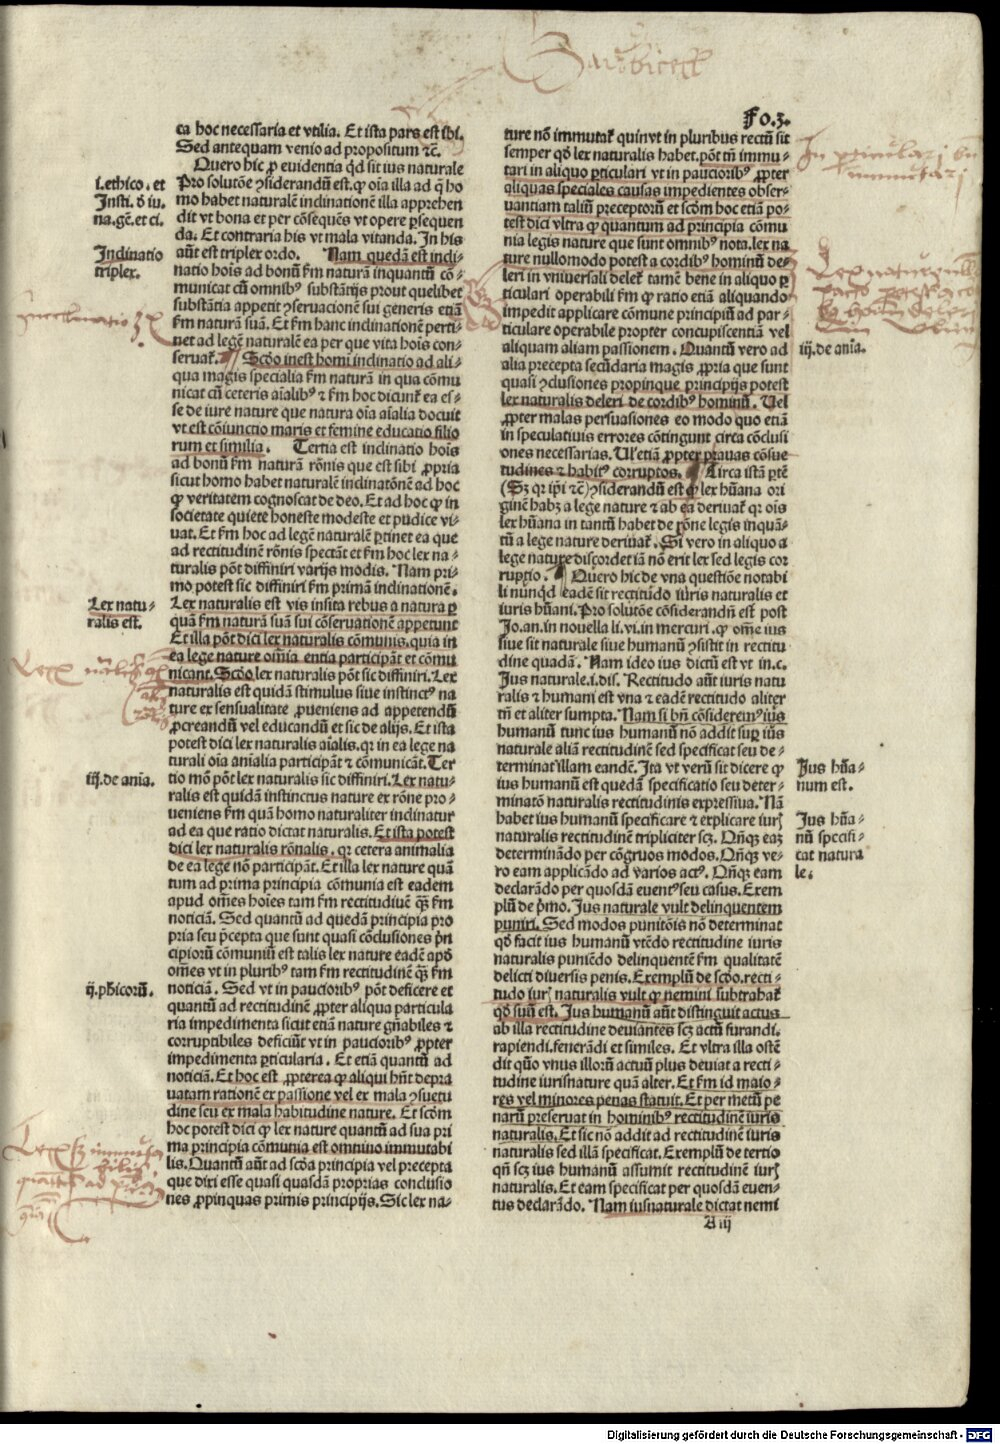 Fo.3.
ca hoc necessaria et vtilia. Et ista pars est ibi.
Sed antequam venio ad propositum ⁊c̄.
Quero hic ꝓ euidentia qd̄ sit ius naturale
Pro solutōe ꝯsiderandū est. ꝙ oīa illa ad q̄ ho
mo habet naturalē inclinationē illa apprehen
dit vt bona et per cōsequēs vt opere ꝑsequen
da. Et contraria his vt mala vitanda. In his
aūt est triplex ordo. Nam quedā est incli-
natio hoīs ad bonū ẜm naturā inquantū cō-
municat cū omnibꝰ substātijs prout quelibet
substātia appetit ꝯseruacionē sui generis etiā
ẜm naturā suā. Et ẜm hanc inclinationē perti-
net ad legē naturalē ea per que vita hoīs con-
seruat̉. Scḋo inest homi inclinatio ad ali-
qua magis specialia ẜm naturā in qua cōmu
nicat cū ceteris aīalibꝰ ⁊ ẜm hoc dicunt̉ ea es-
se de iure nature que natura oīa aīalia docuit
vt est cōiunctio maris et femine educatio filio
rum et similia. Tertia est inclinatio hoīs
ad bonū ẜm naturā rōnis que est sibi ꝓpria
sicut homo habet naturalē inclinatōnē ad hoc
ꝙ veritatem cognoscat de deo. Et ad hoc ꝙ in
societate quiete honeste modeste et pudice vi-
uat. Et ẜm hoc ad legē naturalē ꝑtinet ea que
ad rectitudinē rōnis spectāt et ẜm hoc lex na-
turalis pōt diffiniri varijs modis. Nam pri-
mo potest sic diffiniri ẜm primā inclinationē.
Lex naturalis est vis insita rebus a natura ꝑ
quā ẜm naturā suā sui cōseruationē appetunt
Et illa pōt dici lex naturalis cōmunis. quia in
ea lege nature om̄ia entia participāt et cōmu
nicant. Scḋo lex naturalis pōt sic diffiniri. Lex
naturalis est quidā stimulus siue instinctꝰ na
ture ex sensualitate ꝓueniens ad appetendū
ꝓcreandū vel educandū et sic de alijs. Et ista
potest dici lex naturalis aīalis. qꝛ in ea lege na
turali oīa aīalia participāt ⁊ cōmunicāt. Ter
tio mō pōt lex naturalis sic diffiniri. Lex natu-
ralis est quidā instinctus nature ex rōne pro-
ueniens ẜm quā homo naturaliter inclinatur
ad ea que ratio dictat naturalis. Et ista potest
dici lex naturalis rōnalis. qꝛ cetera animalia
de ea lege nō participāt. Et illa lex nature quā
tum ad prima principia cōmunia est eadem
apud om̄es hoīes tam ẜm rectitudinē qͣꝫ ẜm
noticiā. Sed quantū ad quedā principia pro
pria seu p̄cepta que sunt quasi cōclusiones pr̄i
cipiorū cōmuniū est talis lex nature eadē apḋ
om̄es vt in pluribꝰ tam ẜm rectitudinē qͣꝫ ẜm
noticiā. Sed vt in paucioribꝰ pōt deficere et
quantū ad rectitudinē ꝓpter aliqua particula
ria impedimenta sicut etiā nature gn̄abiles ⁊
corruptibiles deficiūt vt in paucioribꝰ ꝓpter
impedimenta ꝑticularia. Et etiā quantū ad
noticiā. Et hoc est ꝓpterea ꝙ aliqui hn̄t depra
uatam rationē ex passione vel ex mala ꝯsuetu
dine seu ex mala habitudine nature. Et scḋm
hoc potest dici ꝙ lex nature quantū ad sua pri
ma principia cōmunia est omnino immutabi
lis. Quantū aūt ad scḋa principia vel precepta
que dixi esse quasi quasdā proprias conclusio
nes ꝓpinquas primis principijs. Sic lex na-
i. ethico. et
Insti. ḋ iu.
na. gē. et ci.
Inclinatio
triplex.
Lex natu-
ralis est.
iij. de anīa.
ij. phicorū.
ture nō immutat̉ quin vt in pluribus rectū sit
semper qḋ lex naturalis habet. pōt tn̄ immu-
tari in aliquo ꝑticulari vt in paucioribꝰ ꝓpter
aliquas speciales causas impedientes obser-
uantiam taliū preceptorū et scḋm hoc etiā po-
test dici vltra ꝙ quantum ad principia cōmu
nia legis nature que sunt omnibꝰ nota. lex na
ture nullomodo potest a cordibꝰ hominū de-
leri in vniuersali delet̉ tamē bene in aliquo ꝑ
ticulari operabili ẜm ꝙ ratio etiā aliquando
impedit applicare cōmune principiū ad par-
ticulare operabile propter concupiscentiā vel
aliquam aliam passionem. Quantū vero ad
alia precepta secūdaria magis ꝓpria que sunt
quasi ꝯclusiones propinque principijs potest
lex naturalis deleri de cordibꝰ hominū. Vel
ꝓpter malas persuasiones eo modo quo etiā
in speculatiuis errores cōtingunt circa cōclusi
ones necessarias. Vl̓ etiā ꝓpter prauas cōsue
tudines ⁊ habitꝰ corruptos. Circa istā ꝑtē
(Sꝫ qꝛ ip̄i ⁊c̄) ꝯsiderandū est ꝙ lex hūana ori
ginē habꝫ a lege nature ⁊ ab ea deriuat̉ qꝛ oīs
lex hūana in tantū habet de rōne legis inquā-
tū a lege nature deriuat̉. Si vero in aliquo a
lege nature discordet iā nō erit lex sed legis cor
ruptio. Quero hic de vna questiōe notabi
li nunqḋ eadē sit rectitudo iuris naturalis et
iuris hūani. Pro solutōe cōsiderandū est post
Jo. an. in nouella li. vi. in mercuri. ꝙ om̄e ius
siue sit naturale siue humanū ꝯsistit in rectitu
dine quadā. Nam ideo ius dictū est vt in. c.
Jus naturale. i. dis. Rectitudo aūt iuris natu
ralis ⁊ humani est vna ⁊ eadē rectitudo aliter
tn̄ et aliter sumpta. Nam si bn̄ cōsideremꝰ ius
humanū tunc ius humanū nō addit suꝑ iūs
naturale aliā rectitudinē sed specificat seu de-
terminat illam eandē. Ita vt verū sit dicere ꝙ
ius humanū est quedā specificatio seu deter-
minatō naturalis rectitudinis expressiua. Nā
habet ius humanū specificare ⁊ explicare iurꝭ
naturalis rectitudinē tripliciter scꝫ. Qn̄qꝫ eaꝫ
determinādo per cōgruos modos. Qn̄qꝫ ve-
ro eam applicādo ad varios actꝰ. Qn̄qꝫ eam
declarādo per quosdā euentꝰ seu casus. Exem
plū de p̄mo. Jus naturale vult delinquentem
puniri. Sed modos punitōis nō determinat
qḋ facit ius humanū vtēdo rectitudine iuris
naturalis puniēdo delinquentē ẜm qualitatē
delicti diuersis penis. Exemplū de scḋo. recti-
tudo iurꝭ naturalis vult ꝙ nemini subtrahat̉
qḋ suū est. Jus humanū aūt distinguit actus
ab illa rectitudine deuiantes scꝫ actū furandi.
rapiendi. fenerādi et similes. Et vltra illa ostē
dit quō vnus illorū actuū plus deuiat a recti-
tudine iuris nature quā alter. Et ẜm id maio-
res vel minores penas statuit. Et per metū pe
narū preseruat in hominibꝰ rectitudinē iuris
naturalis. Et sic nō addit ad rectitudinē iuris
naturalis sed illā specificat. Exemplū de tertio
qn̄ scꝫ ius humanū assumit rectitudinē iurꝭ
naturalis. Et eam specificat per quosdā euen-
tus declarādo. Nam ius naturale dictat nemi
A iij
iij. de anīa.
Jus hūa-
num est.
Jus hūa-
nū specifi-
cat natura
le.
Digitalisierung gefördert durch die Deutsche Forschungsgemeinschaft - DFG